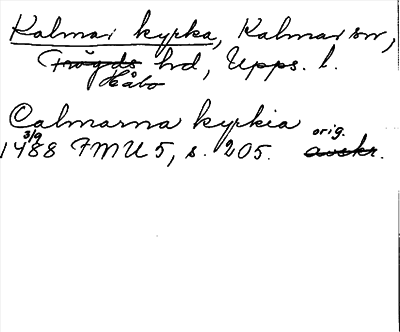 Kalmar kyrka, Kalmar sn,
Trögds hd, Upps. l.
Håbo
Calmarna kyrkia
3/9 orig.
1488 FMU 5, s. 205. avskr.